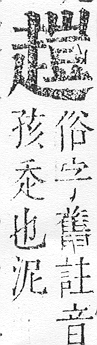 俗字舊註音
孩也泥